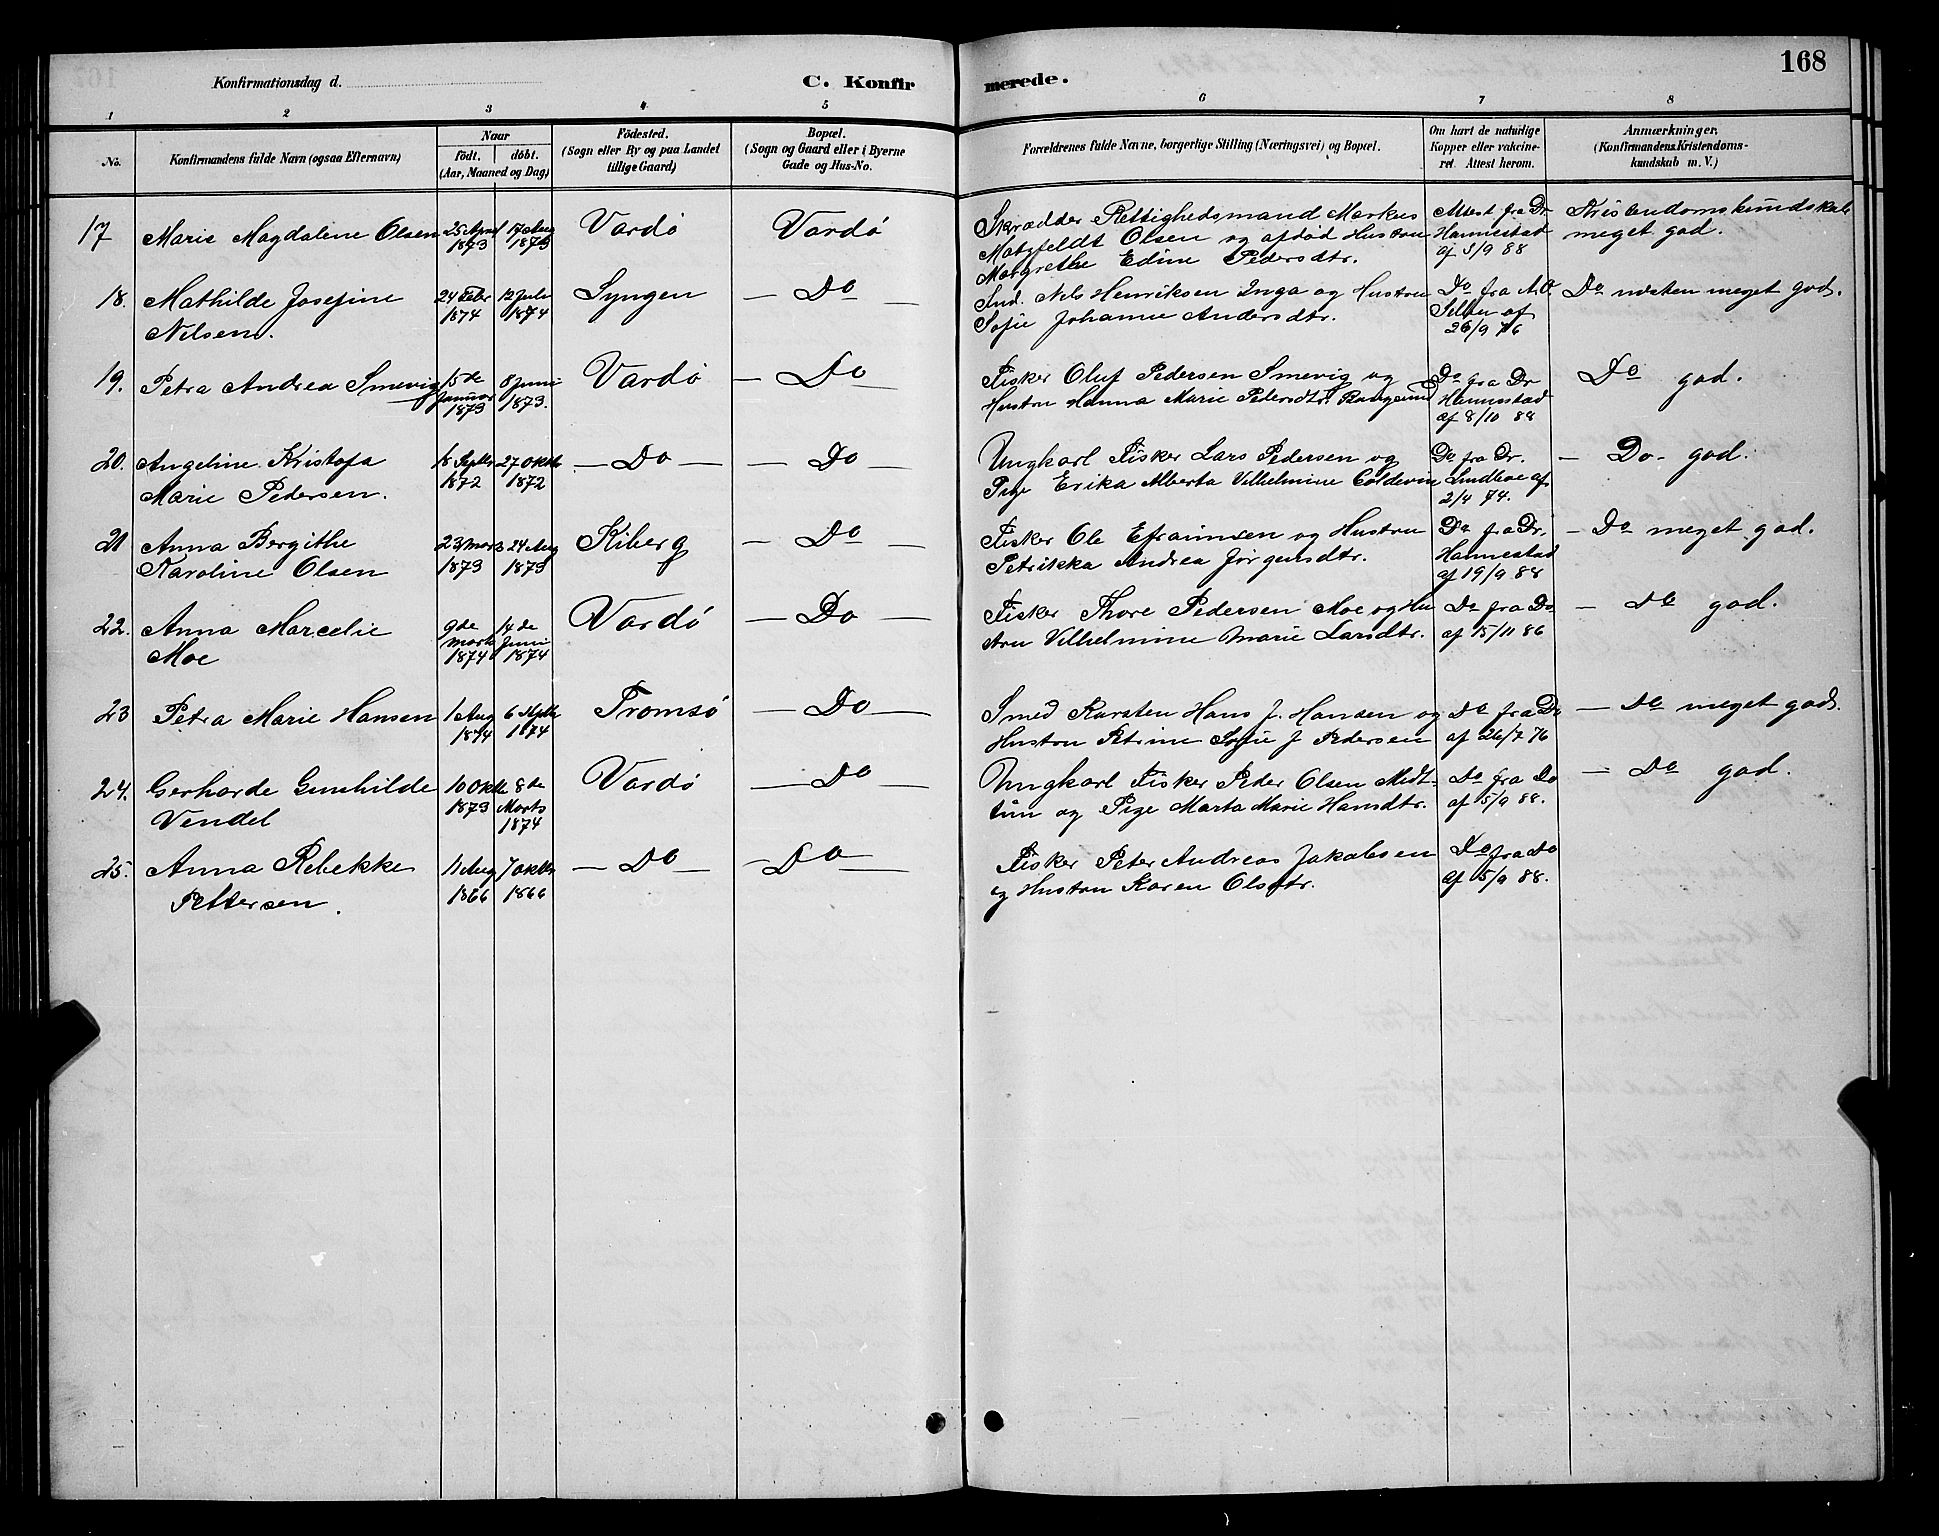 168
Konfirmationsdag d.
C. Konfirmerede.
1 2 3 4 5 6 7 8
No.
Konfirmandens fulde Navn (ogsaa Efternavn)
Naar
födt. döbt.
(Aar, Maaned og Dag)
Födested.
(Sogn eller By og paa Landet
tillige Gaard)
Bopæl.
(Sogn og Gaard eller i Byerne
Gade og Hus-No.
Forældrenes fulde Navne, borgerlige Stilling (Næringsvei) og Bopæl.
Om havt de naturlige
Kopper eller vakcine-
ret. Attest herom.
Anmærkninger,
(Konfirmandens Kristendoms-
kundskab m. V.)
17 Marie Magdalene Olsen
25 April
1873
17 Aug
1873
Vardö
Vardö
Skrædder Rettighedsmand Markus
Matzfeldt Olsen og afdöd Hustru
Margrethe Edine Pedersdtr.
Attest fra Dr
Hannestad
af 3/9 88
Kristendomskundskab
meget god.
18. Mathilde Josefine
Nilsen.
24 Febr
1874
12 Juli
1874
Lyngen
— Do —
Ind. Nils Henriksen Inga og Hustru
Sofie Johanne Andersdtr.
Do fra A.O.
af
26/9 76
Do næsten meget god.
19. Petra Andrea Smevig
15de
Januar
1873
8 Juni
1873.
Vardö
— Do —
Fisker Oluf Pedersen Smevig og
Hustru Hanna Marie Pedersdtr.
Do fra Dr
Hannestad
af 8/10 88
Do god.
20. Angeline Kristofa
Marie Pedersen.
18 Septbr
1872
27 Oktbr
1872
— Do —
— Do —
Ungkarl Fisker Lars Pedersen og
Pige Erika Alberta Vilhelmine Coldevin
Do fra Dr.
af
2/4 74.
— Do - god.
21 Anna Bergithe
Karoline Olsen
23 Mars
1873
24 Aug
1873
Kiberg
— Do —
Fisker Ole Efraimsen og Hustru
Petrikka Andrea Jörgensdtr.
Do fra Dr.
Hannestad
af 19/9 88
— Do meget god.
22. Anna Marcelie
Moe
9de
Marts
1874
14de
Juni
1874
Vardö
— Do —
Fisker Thore Pedersen Moe og Hu
stru Vilhelmine Marie Larsdtr.
Do fra Do
af 15/11 86
— Do god.
23 Petra Marie Hansen
1 Aug
1874
6 Septbr
1874
Tromsö
— Do —
Smed Karsten Hans J. Hansen og
Hustru Petrine Sofie J Pedersen
Do fra Do
af 26/7 76
— Do meget god.
24. Gerharde Gunhilde
Vendel
10 Oktbr
1873
8de
Marts
1874
Vardö
— Do —
Ungkarl Fisker Peder Olsen Midt-
tün og Pige Marta Marie Hansdtr.
Do fra Do
af 5/9 88.
— Do god.
25. Anna Rebekke
Pettersen.
11 Aug
1866
7 Oktbr
1866
— Do —
— Do —
Fisker Peter Andreas Jakobsen
og Hustru Karen Olsdtr.
Do fra Do
af 5/9 88.